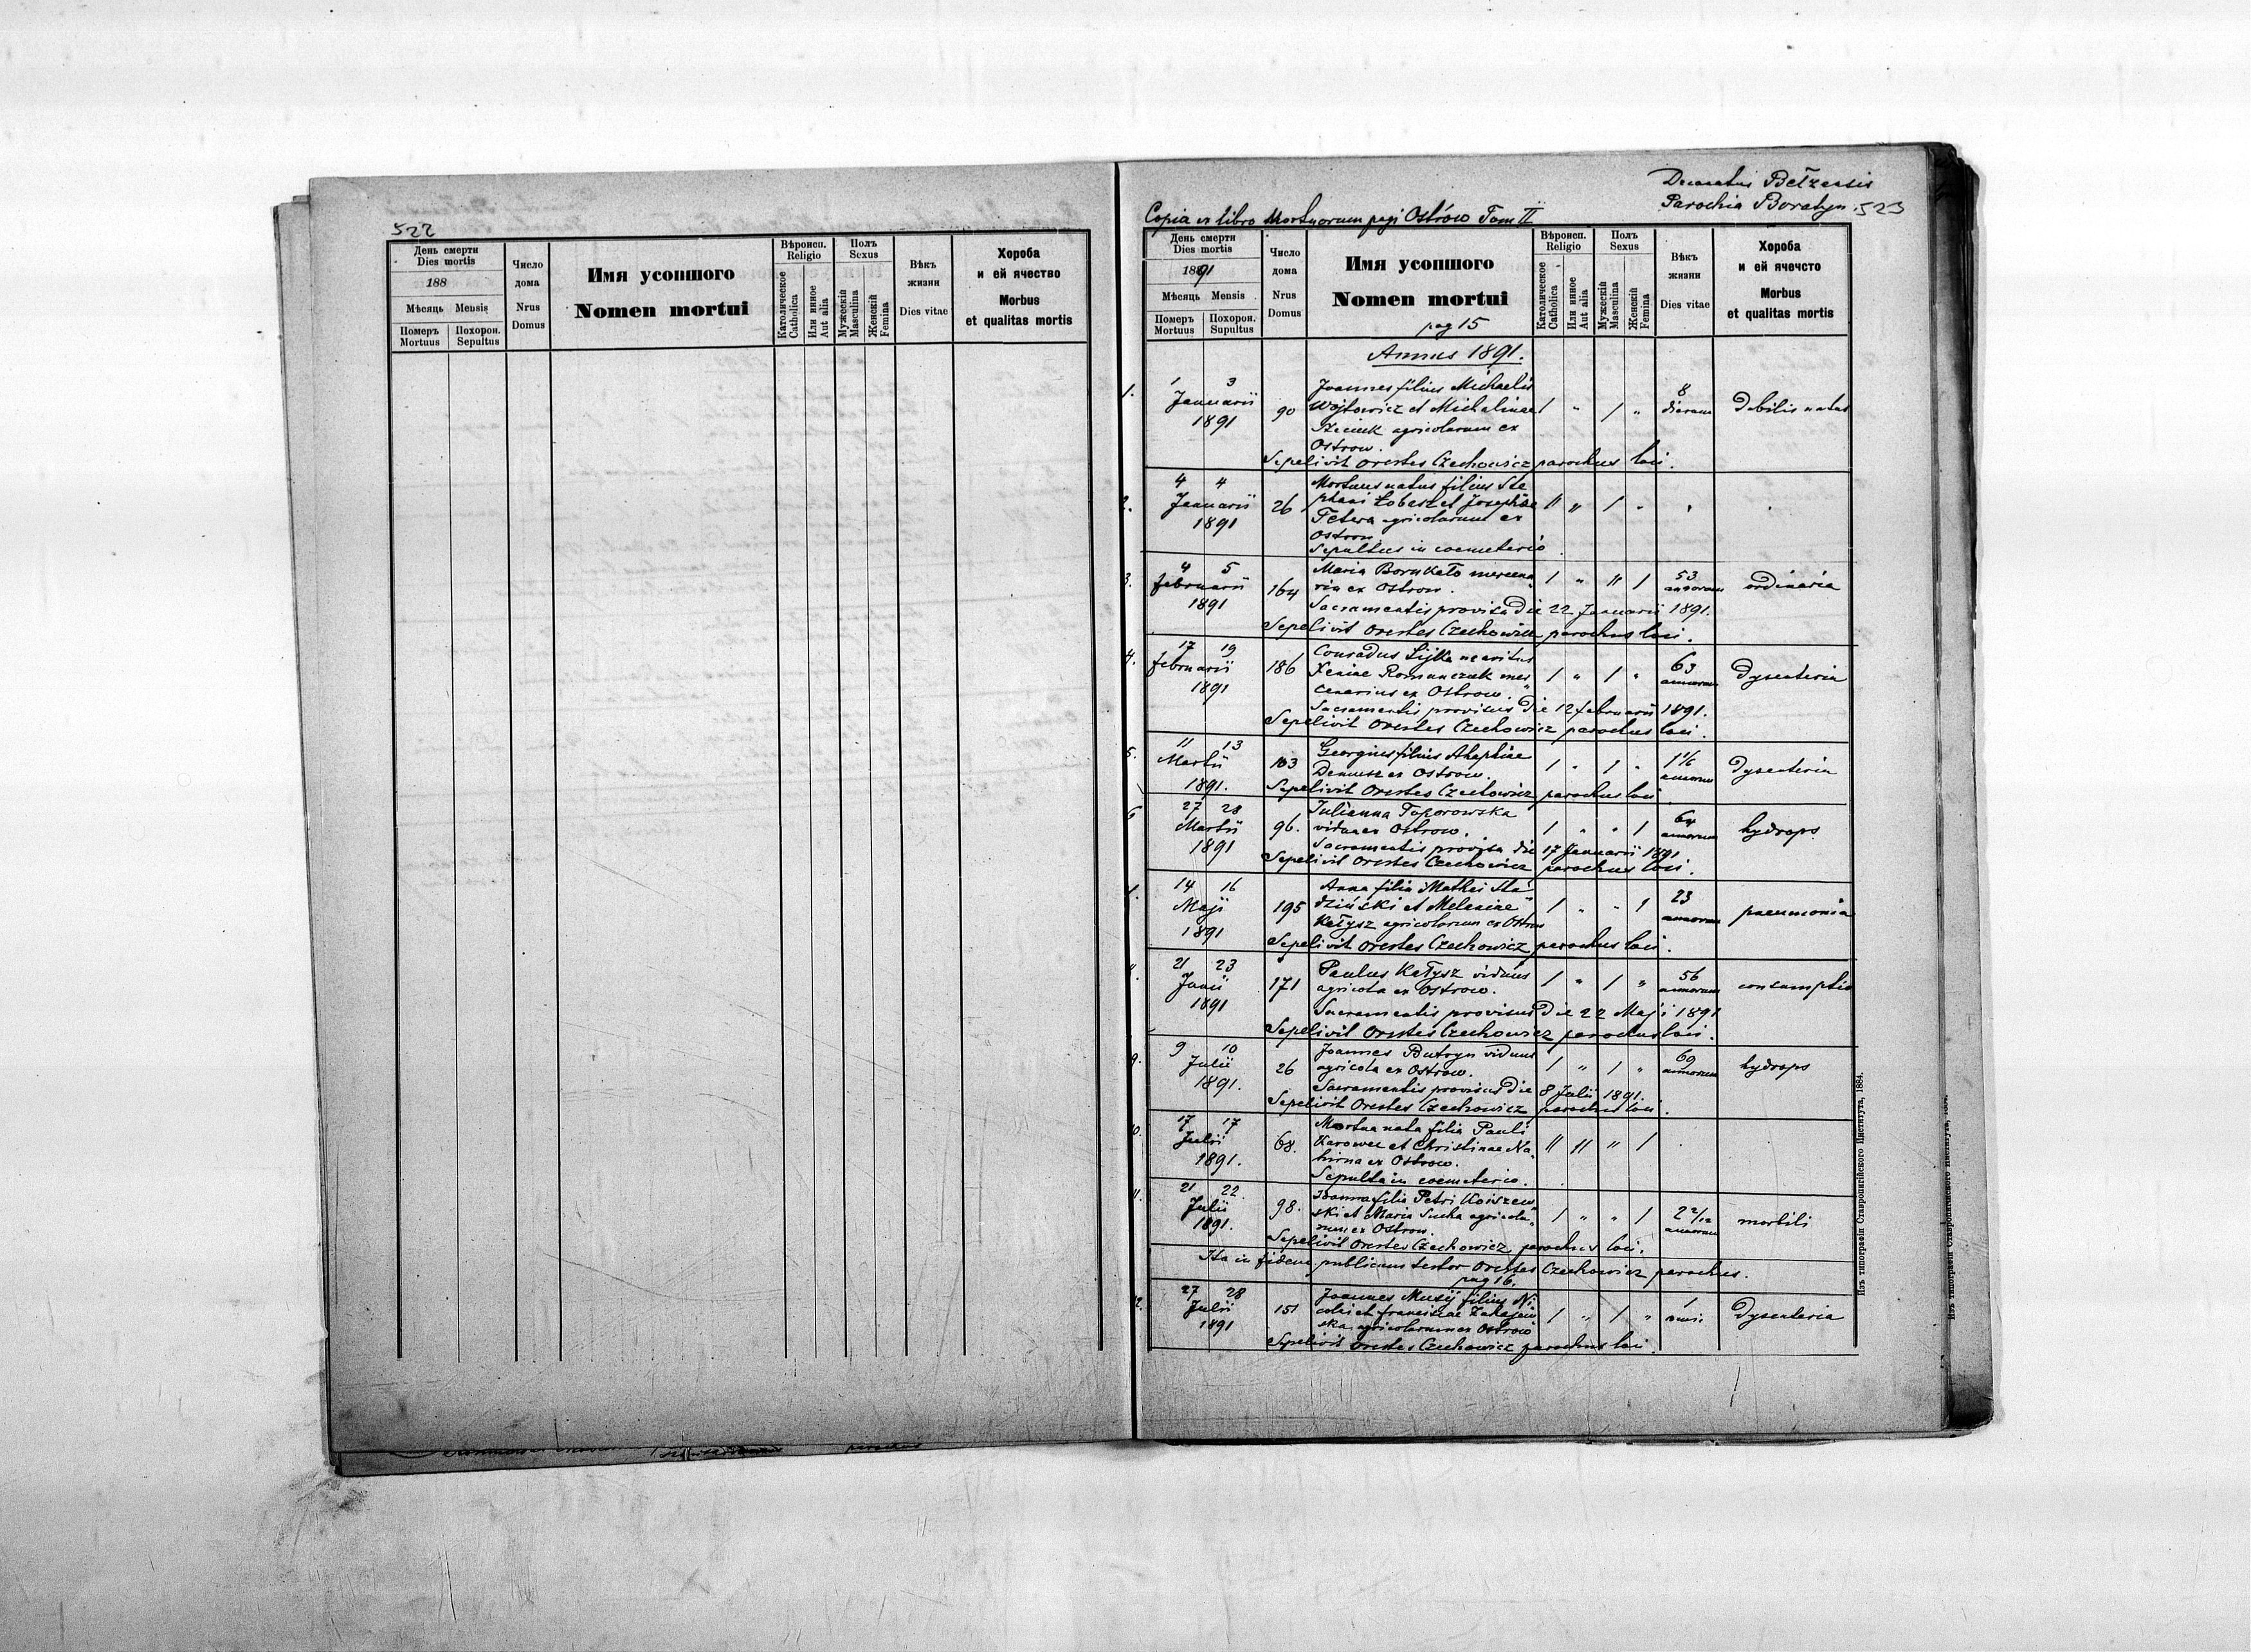 522
День смерти
Dies mortis
188
Мѣсяць Mensis
Померъ Mortuus
Похорон. Sepultus
Число дома
Nrus Domus
Имя усопшого
Nomen mortui
Вѣроисп. Religio
Католическое Catholica
Или инное Aut alia
Полъ Sexus
Мужескій Masculina
Женскій Femina
Вѣкъ жизни
Dies vitae
Хороба
и ей ячество
Morbus
et qualitas mortis
Decanatus Bełzensis
Parochia Boratyn 523
Copia ex libro Mortuorum pagi Ostrów Tom II
День смерти
Dies mortis
1891
Мѣсяць Mensis
Померъ Mortuus
Похорон. Supultus
Число дома
Nrus Domus
Имя усопшого
Nomen mortui
pag 15
Вѣроисп. Religio
Католическое Catholica
Или инное Aut alia
Полъ Sexus
Мужескій Masculina
Женскій Femina
Вѣкъ жизни
Dies vitae
Хороба
и ей ячечсто
Morbus
et qualitas mortis
Annus 1891.
1. 1 3
Joannes filius Michaelis 8
Januarii 90 Wojtowicz et Michalinae 1 " 1 " dierum debilis natus
1891 agricolarum ex
Ostrow.
Sepelivit Orestes Czechowicz parochus loci.
4 4 Mortuus natus filius Ste
2. Januarii 26 phani Łobasz et Josephae " " 1
1891 Fetera agricolarum ex
Ostrow.
Sepultus in coemeterio
3. 4 5 Maria mercena 1 " " 1 53
Februarii 164 ria ex Ostrow. annorum ordinaria
1891 Sacramentis provisa die 22 Januarii 1891.
Sepelivit Orestes Czechowicz parochus loci.
4. 17 19 Conradus maritus
Februarii 186 Xeniae Romanczuk mer 1 " 1 " 63 annorum dysenteria
1891 cenarius ex Ostrow.
Sacramentis provisus die 12 februarii 1891.
Sepelivit Orestes Czechowicz parochus loci.
5. 11 13 Georgius filius Ahaphiae
Martii 103 ex Ostrow. 1 " 1 " 1 1/6 annorum dysenteria
1891. Sepelivit Orestes Czechowicz parochus loci
6 27 28 Julianna Toporowska
Martii 96. vidua ex Ostrow. 1 " " 1 64 annorum hydrops
1891 Sacramentis provisa die 17 Januarii 1891
Sepelivit Orestes Czechowicz parochus loci.
14 16 Anna filia Mathei Sta
Maji 195 dziński et Melaniae 1 " " 1 23 annorum pneumonia
1891 Kełysz agricolarum ex Ostrow
Sepelivit Orestes Czechowicz parochus loci.
21 23 Paulus Kełysz viduus
Junii 171 agricola ex Ostrow. 1 " 1 " 56 annorum consumptio
1891 Sacramentis provisus die 22 Maji 1891
Sepelivit Orestes Czechowicz parochus loci.
9. 9 10 Joannes Butryn viduus
Julii 26 agricola ex Ostrow. 1 " 1 " 69 annorum hydrops
1891. Sacramentis provisus die 8 Julii 1891.
Sepelivit Orestes Czechowicz parochus loci.
10. 17 17 Mortua nata filia Pauli
Julii 68. Karowec et Christinae Na " " " 1
1891. hirna ex Ostrow.
Sepulta in coemeterio.
11. 21 22 Joanna filia Petri
Julii 98. ski et Maria Sucha agricola 1 " " 1 2 2/12 annorum morbili
1891. rum ex Ostrow
Sepelivit Orestes Czechowicz parochus loci.
Ita in fidem publicam testor Orestes Czechowicz parochus.
pag 16.
12. 27 28 Joannes Musij filius Ni
Julii 151 colai et Franciscae 1 " 1 " 1 dysenteria
1891 ska agricolarum ex Ostrow
Sepelivit Orestes Czechowicz parochus loci.
Изъ типографіи Ставропигійского Института, 1884.